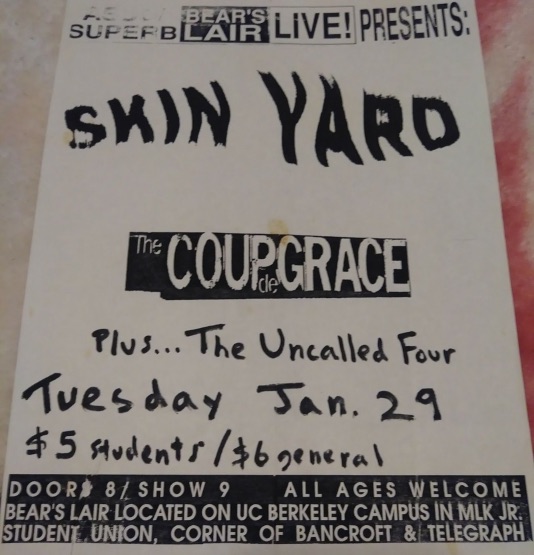 ASUC SUPERB BEAR'S LAIR LIVE! PRESENTS:
SKIN YARD
The COUP de GRACE
Plus... The Uncalled Four
Tuesday Jan. 29
$5 students / $6 general
DOORS 8/ SHOW 9 ALL AGES WELCOME
BEAR'S LAIR LOCATED ON UC BERKELEY CAMPUS IN MLK JR.
STUDENT UNION, CORNER OF BANCROFT & TELEGRAPH